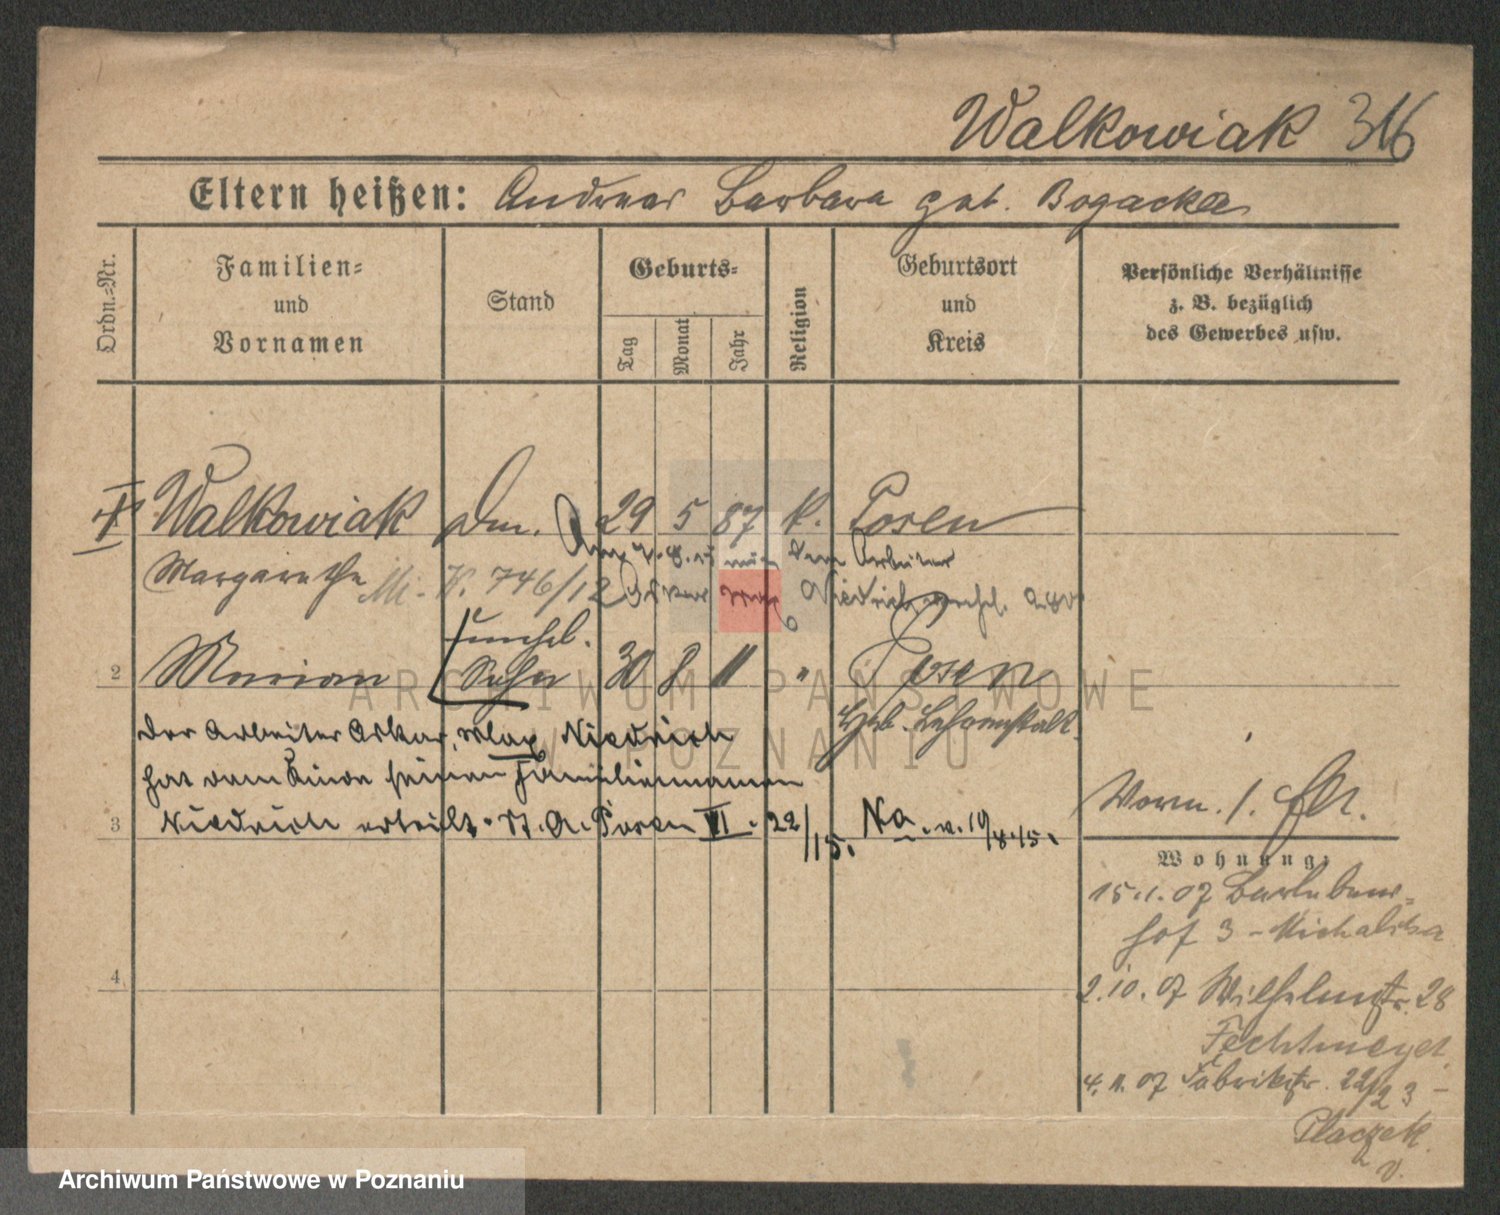 Walkowiak 316
Eltern heißen: Andreas Barbara geb. Bogacka
Ordn.=Nr.
Familien=
und
Vornamen
Stand
Geburts=
Tag
Monat
Jahr
Religion
Geburtsort
und
Kreis
Persönliche Verhältnisse
z. B. bezüglich
des Gewerbes usw.
1 Walkowiak Dm. 29 5 87 k. Posen
Margarethe
K. 746/12
dem Arbeiter
Oskar Max Niedrich
unehel.
2 Marian Sohn 30 8 11 " Posen
Heb. Lehranstalt.
Der Arbeiter Oskar, Max Niedrich
hat dem Kinde seinen Familiennamen
3 Niedrich erteilt. St. A. Posen VI. 22/15. Na. v. 19/8.15.
Vorm. 1.
Wohnung:
15.1.07 Bartholdshof 3 - Michalska
2.10.07 Wilhelmstr. 28
Fechtmeyer
4
4.11.07 Fabrikstr. 22/23 -
Placzek
ARCHIWUM PAŃSTWOWE
W POZNANIU
Archiwum Państwowe w Poznaniu